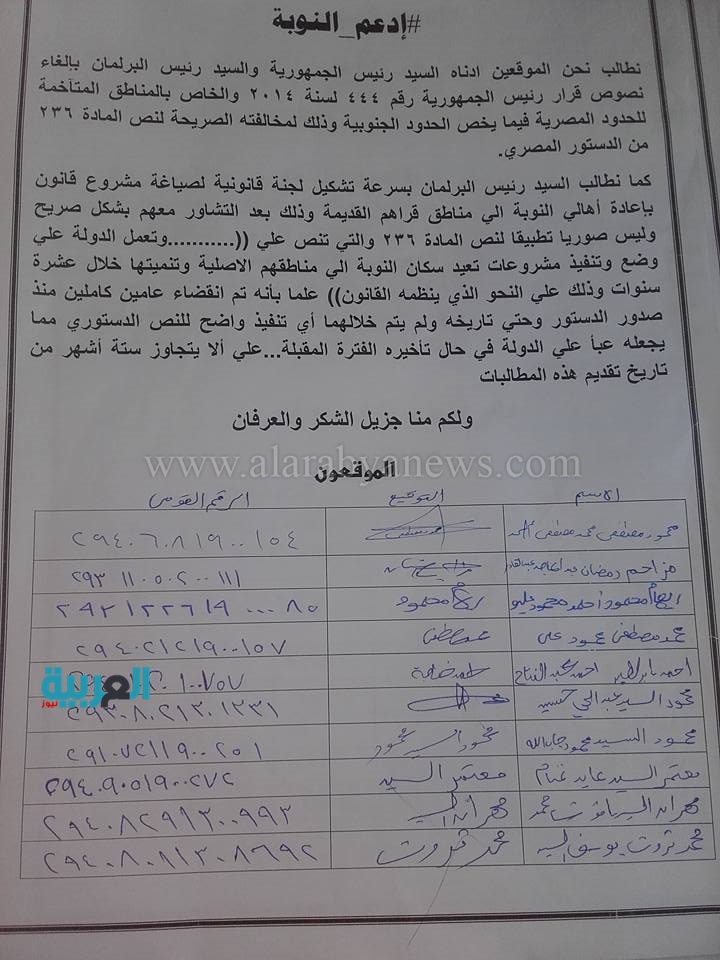 #إدعم_النوبة
نطالب نحن الموقعين ادناه السيد رئيس الجمهورية والسيد رئيس البرلمان بإلغاء
نصوص قرار رئيس الجمهورية رقم ٤٤٤ لسنة ٢٠١٤ والخاص بالمناطق المتآخمة
للحدود المصرية فيما يخص الحدود الجنوبية وذلك لمخالفته الصريحة لنص المادة ٢٣٦
من الدستور المصري.
كما نطالب السيد رئيس البرلمان بسرعة تشكيل لجنة قانونية لصياغة مشروع قانون
بإعادة أهالي النوبة الي مناطق قراهم القديمة وذلك بعد التشاور معهم بشكل صريح
وليس صوريا تطبيقا لنص المادة ٢٣٦ والتي تنص علي ((...........وتعمل الدولة علي
وضع وتنفيذ مشروعات تعيد سكان النوبة الي مناطقهم الاصلية وتنميتها خلال عشرة
سنوات وذلك علي النحو الذي ينظمه القانون)) علما بأنه تم انقضاء عامين كاملين منذ
صدور الدستور وحتي تاريخه ولم يتم خلالهما أي تنفيذ واضح للنص الدستوري مما
يجعله عبأ علي الدولة في حال تأخيره الفترة المقبلة...علي ألا يتجاوز ستة أشهر من
تاريخ تقديم هذه المطالبات
ولكم منا جزيل الشكر والعرفان
www.alarabyanews.com
الموقعون
الاسم التوقيع الرقم القومى
محمود مصطفى محمد مصطفى ٢٩٤٠٦٠٨١٩٠٠١٥٤
مزاحم رمضان ٢٩٣١١٠٥٠٢٠٠١١١
محمود احمد محمود محمود ٢٩٢١٢٢٦١٩٠٠٠٨٥
محمد مصطفى ٢٩٤٠٢١٢١٩٠٠١٥٧
احمد احمد عبد الفتاح ١٠٠٧٥٧
العربية نيوز
محمود السيد عبدالحي حسين ٢٩٣٠٨٠٢١٣٠١٢٣١
محمود السيد محمود جاب الله محمود السيد محمود ٢٩١٠٧٢١١٩٠٠٢٥١
معتمر السيد عابد غنام معتمر السيد ٢٩٤٠٩٠٥١٩٠٠٢٧٢
مهران محمد مهران ٢٩٤٠٨٢٩١٣٠٠٩٩٢
محمد ثروت يوسف السيد محمد ثروت ٢٩٤٠٨٠٨١٣٠٨٦٩٢